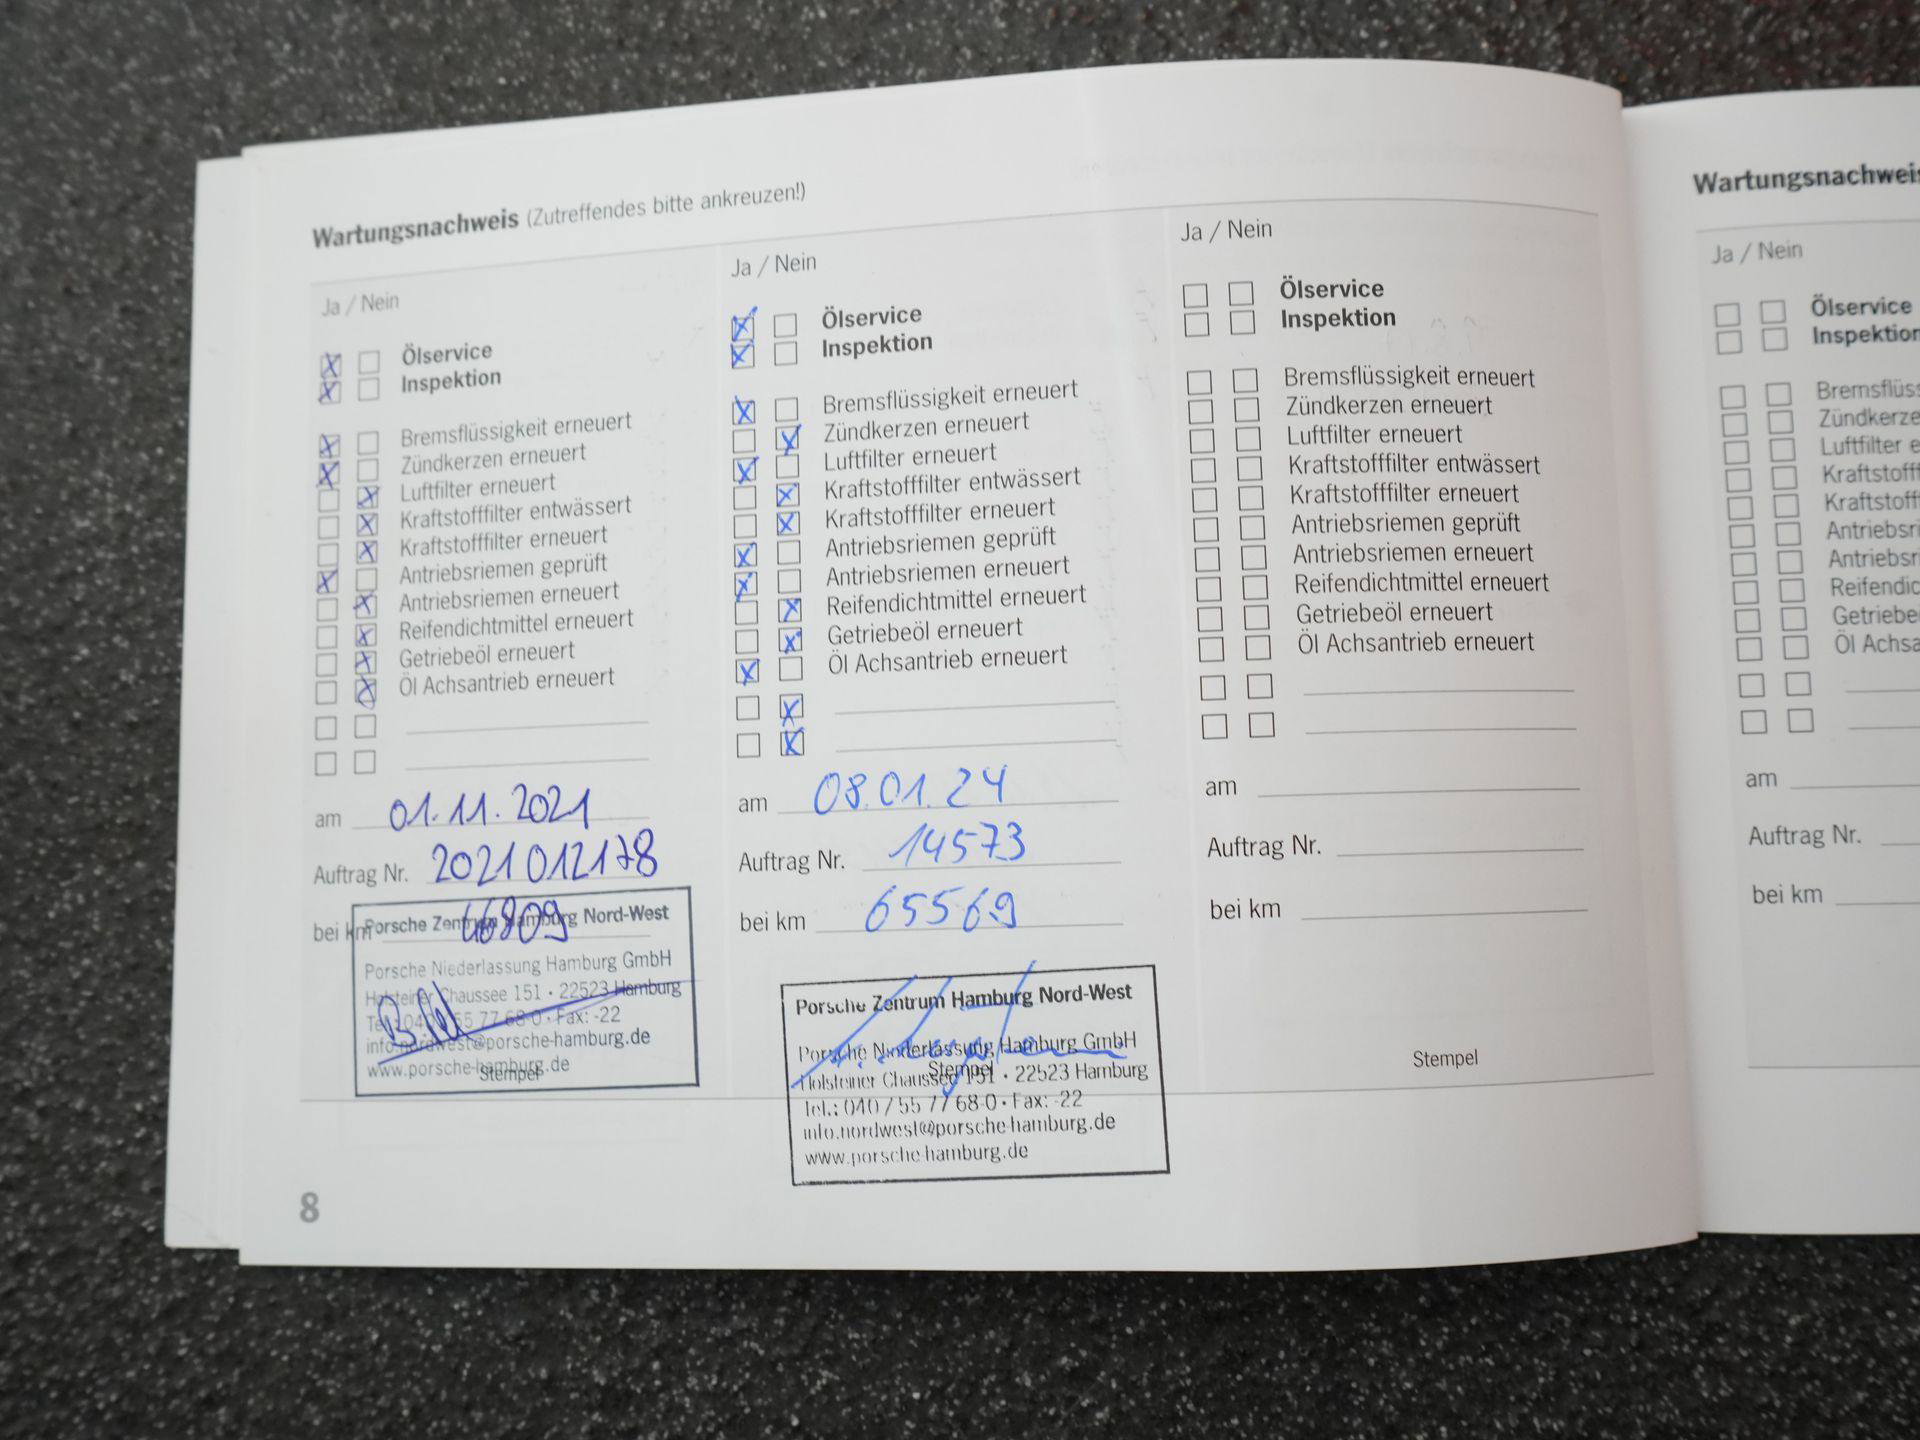 Wartungsnachweis (Zutreffendes bitte ankreuzen!)
Ja / Nein
Ölservice
Inspektion
Bremsflüssigkeit erneuert
Zündkerzen erneuert
Luftfilter erneuert
Kraftstofffilter entwässert
Kraftstofffilter erneuert
Antriebsriemen geprüft
Antriebsriemen erneuert
Reifendichtmittel erneuert
Getriebeöl erneuert
Öl Achsantrieb erneuert
am 01.11.2021
Auftrag Nr. 2021012178
bei km 46809
Porsche Zentrum Hamburg Nord-West
Porsche Niederlassung Hamburg GmbH
Holsteiner Chaussee 151 · 22523 Hamburg
Tel.: 040 / 55 77 68-0 · Fax: -22
info.nordwest@porsche-hamburg.de
www.porsche-hamburg.de
Stempel
Ja / Nein
Ölservice
Inspektion
Bremsflüssigkeit erneuert
Zündkerzen erneuert
Luftfilter erneuert
Kraftstofffilter entwässert
Kraftstofffilter erneuert
Antriebsriemen geprüft
Antriebsriemen erneuert
Reifendichtmittel erneuert
Getriebeöl erneuert
Öl Achsantrieb erneuert
am 08.01.24
Auftrag Nr. 14573
bei km 65569
Porsche Zentrum Hamburg Nord-West
Porsche Niederlassung Hamburg GmbH
Stempel
Holsteiner Chaussee 151 · 22523 Hamburg
Tel.: 040 / 55 77 68-0 · Fax: -22
info.nordwest@porsche-hamburg.de
www.porsche-hamburg.de
Ja / Nein
Ölservice
Inspektion
Bremsflüssigkeit erneuert
Zündkerzen erneuert
Luftfilter erneuert
Kraftstofffilter entwässert
Kraftstofffilter erneuert
Antriebsriemen geprüft
Antriebsriemen erneuert
Reifendichtmittel erneuert
Getriebeöl erneuert
Öl Achsantrieb erneuert
am
Auftrag Nr.
bei km
Stempel
8
Wartungsnachweis
Ja / Nein
Ölservice
Inspektion
Bremsflüss
Zündkerze
Luftfilter e
Kraftstofff
Kraftstofff
Antriebsri
Antriebsr
Reifendic
Getriebe
Öl Achsa
am
Auftrag Nr.
bei km